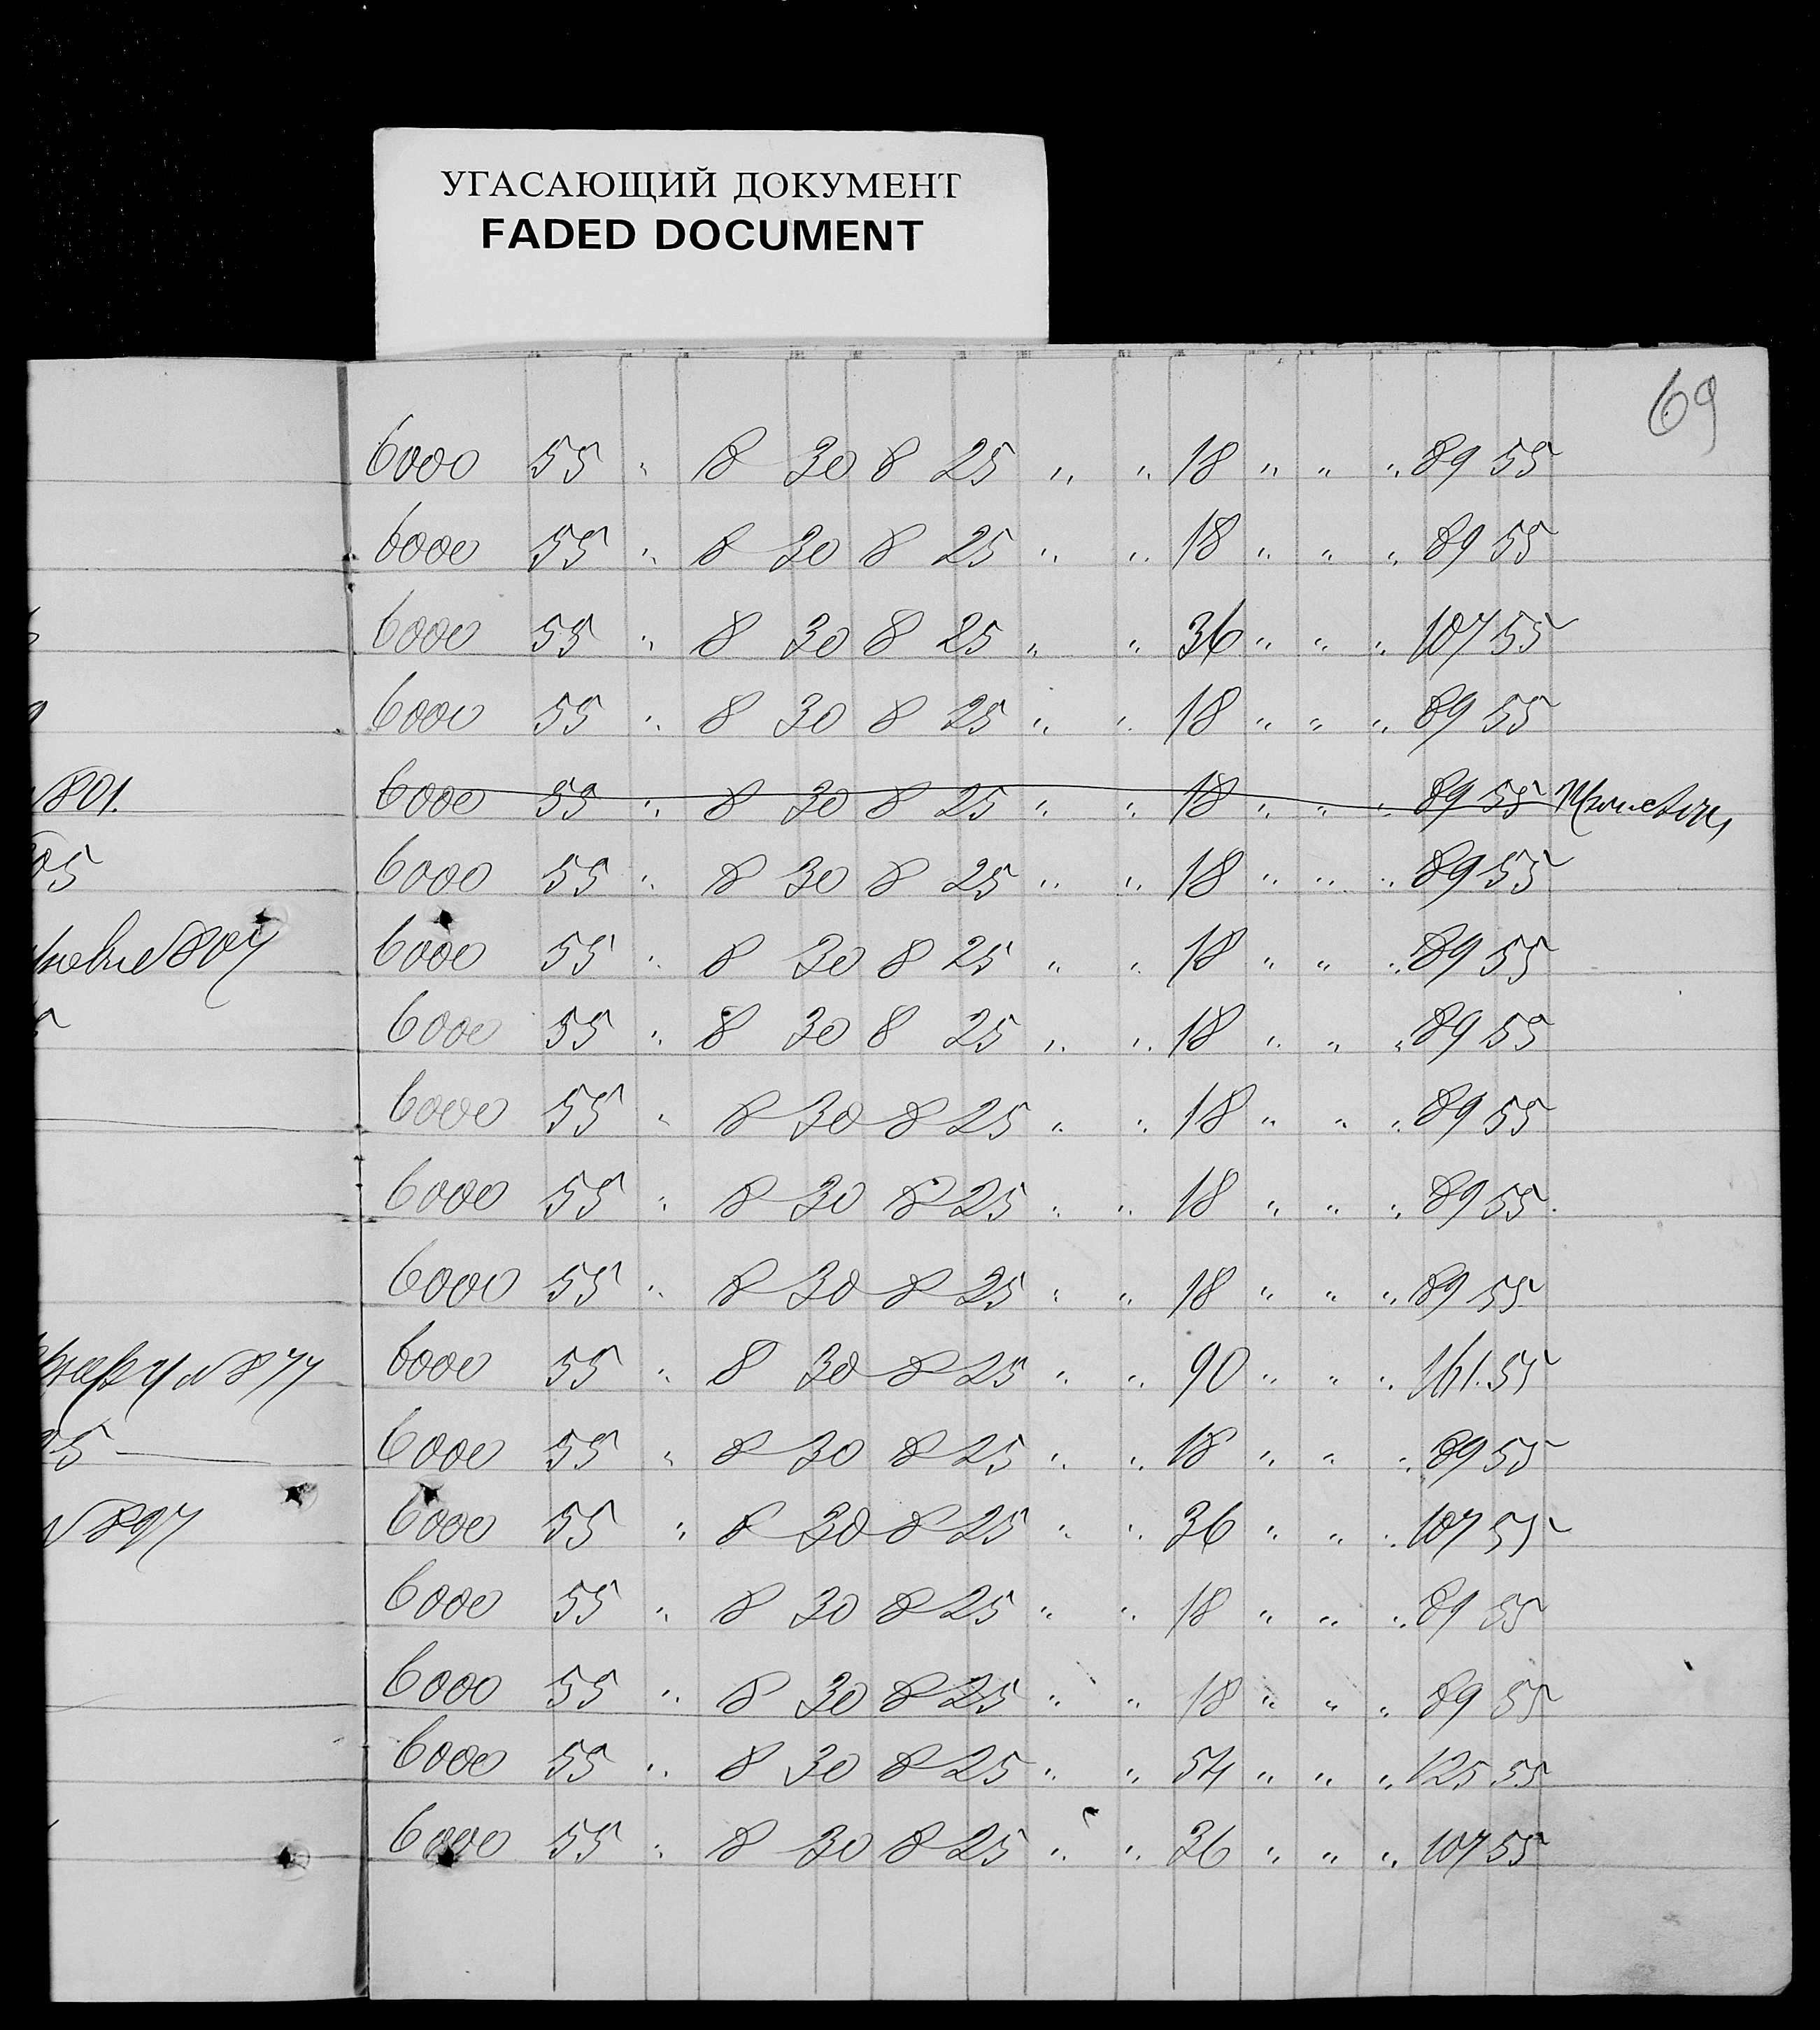 УГАСАЮЩИЙ ДОКУМЕНТ
FADED DOCUMENT
69
6000 55 " 8 30 8 25 " " 18 " " " 89 55
6000 55 " 8 30 8 25 " " 18 " " " 89 55
6000 55 " 8 30 8 25 " " 36 " " " 107 55
6000 55 " 8 30 8 25 " " 18 " " " 89 55
№801. 6000 55 " 8 30 8 25 " " 18 " " " 89 55
05 6000 55 " 8 30 8 25 " " 18 " " " 89 55
№807 6000 55 " 8 30 8 25 " " 18 " " " 89 55
5 6000 55 " 8 30 8 25 " " 18 " " " 89 55
6000 55 " 8 30 8 25 " " 18 " " " 89 55
6000 55 " 8 30 8 25 " " 18 " " " 89 55.
6000 55 " 8 30 8 25 " " 18 " " " 89 55
№877 6000 55 " 8 30 8 25 " " 90 " " " 161.55
95 6000 55 " 8 30 8 25 " " 18 " " " 89 55
№897 6000 55 " 8 30 8 25 " " 36 " " " 107 55
6000 55 " 8 30 8 25 " " 18 " " " 89 55
6000 55 " 8 30 8 25 " " 18 " " " 89 55
6000 55 " 8 30 8 25 " " 54 " " " 125 55
6000 55 " 8 30 8 25 " " 36 " " " 107 55